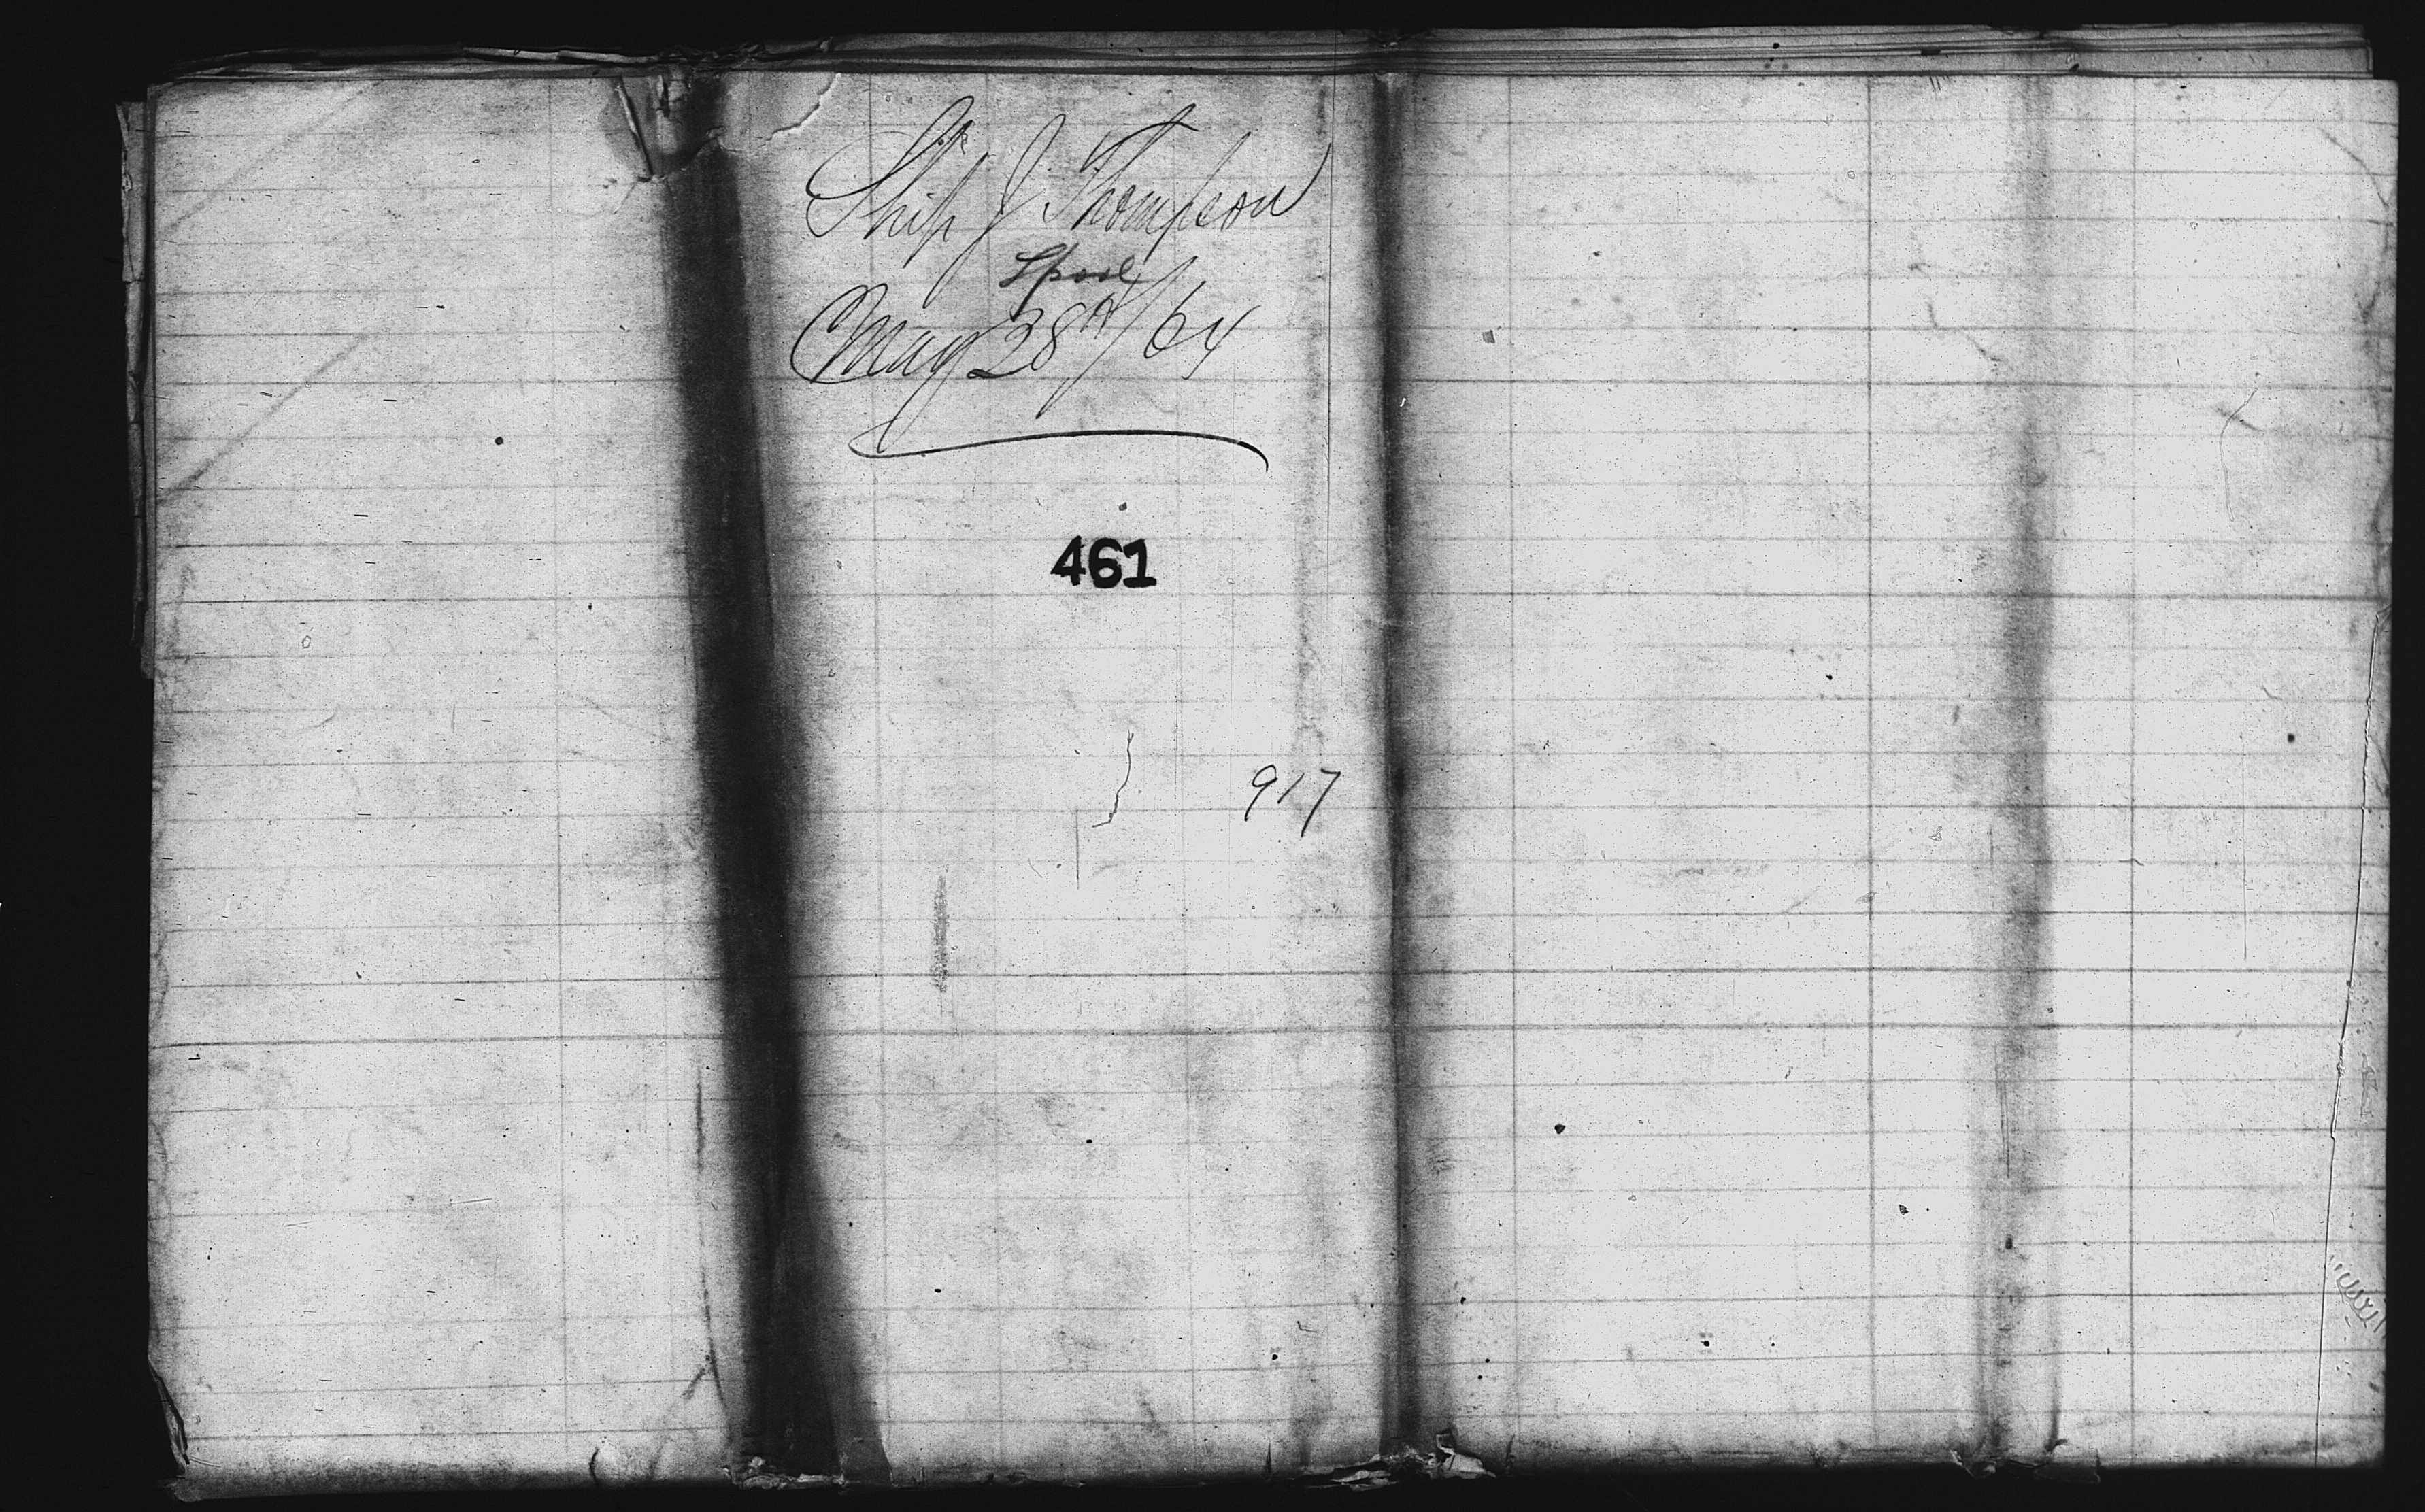 Ship J Thompson
Lpool
May 28th/64
461
917